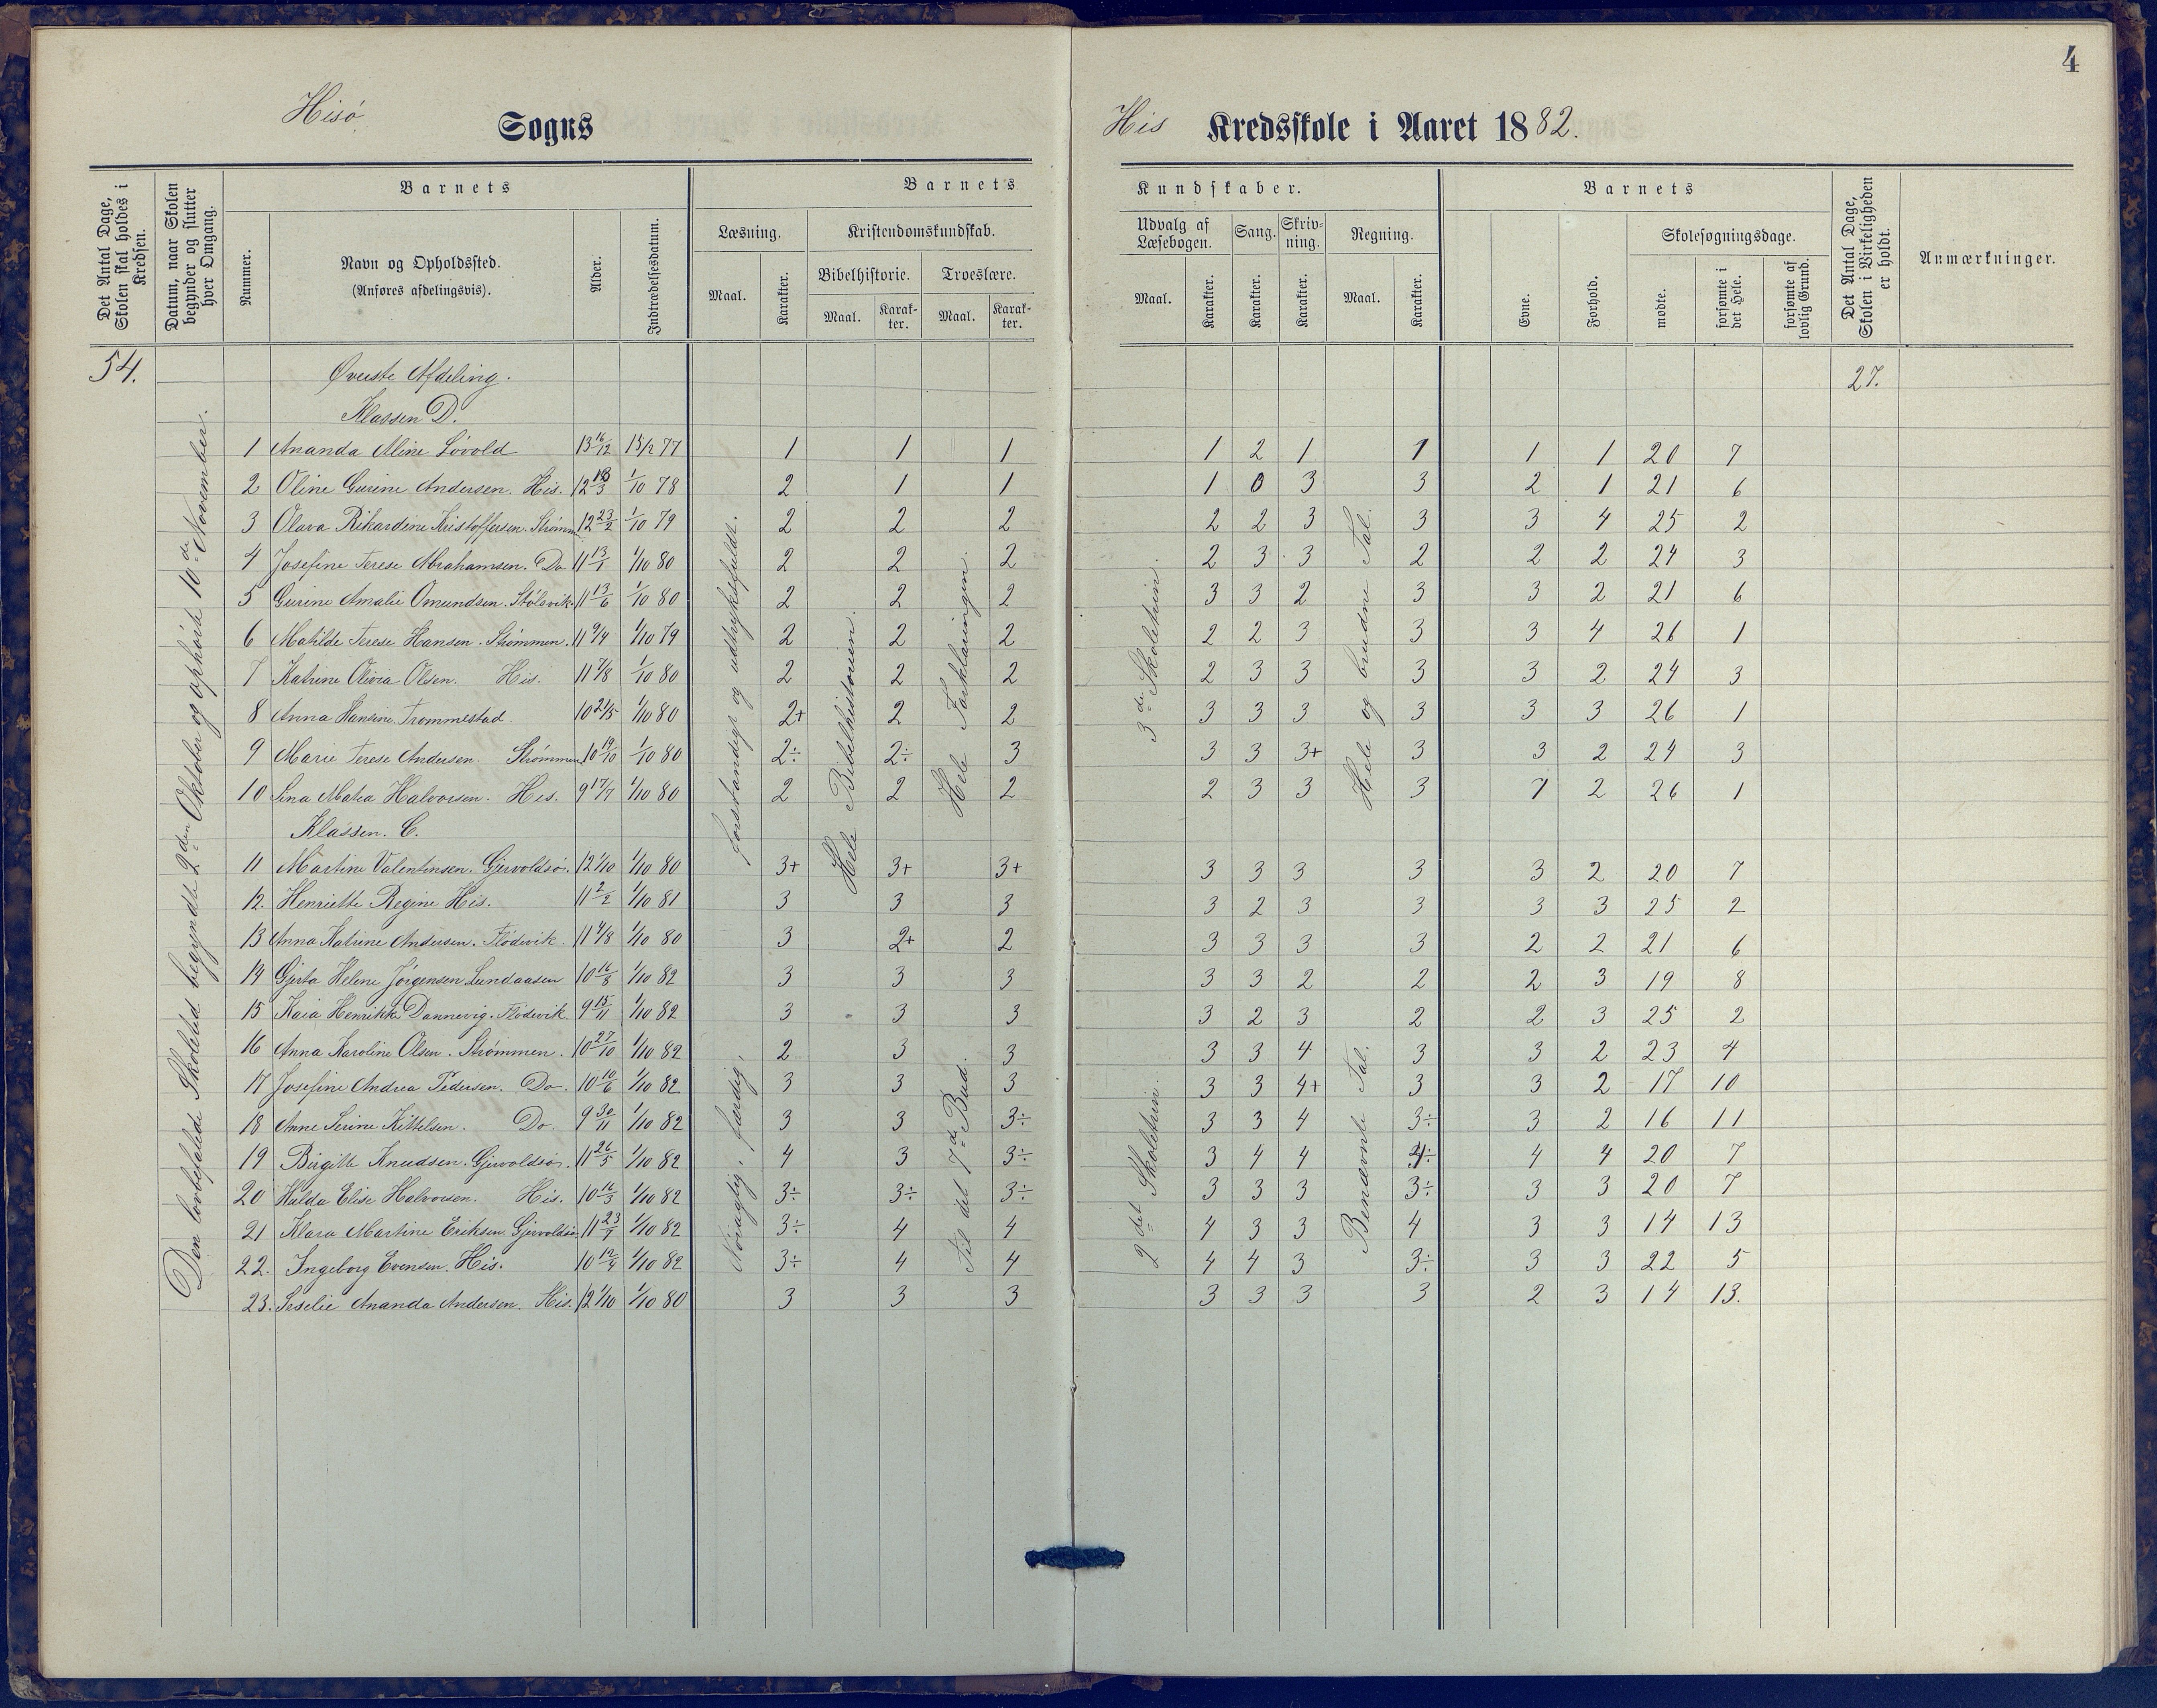 4
Hisö Sogns
His Kredsskole i Aaret 1882.
Det Antal Dage, Skolen skal holdes i Kredsen.
Datum, naar Skolen begynder og slutter hver Omgang.
Barnets
Nummer.
Navn og Opholdssted. (Anføres afdelingsvis).
Alder.
Indtrædelsesdatum.
Barnets Kundskaber.
Læsning.
Maal.
Karakter.
Kristendomskundskab.
Bibelhistorie.
Maal.
Karakter.
Troeslære.
Maal.
Karakter.
Udvalg af Læsebogen.
Maal.
Karakter.
Sang.
Karakter.
Skrivning.
Karakter.
Regning.
Maal.
Karakter.
Barnets
Evne.
Forhold.
Skolesøgningsdage.
mødte.
forsømte i det Hele.
forsømte af lovlig Grund.
Det Antal Dage, Skolen i Virkeligheden er holdt.
Anmærkninger.
54.
27.
Den lovbefalede Skoletid begyndte 2den Oktober og ophørte 10de November.
Øverste Afdeling.
Klassen D.
forstandigt og udtryksfuldt.
Hele Bibelhistorien.
Hele Forklaringen.
3de Skoletrin.
Hele og brudne Tal.
1 Ananda Aline Løvold 13 16/12 15/2 77 1 1 1 1 2 1 1 1 1 20 7
2 Oline Gurine Andersen. His. 12 13/3 1/10 78 2 1 1 1 0 3 3 2 1 21 6
3 Olava Rikardine Kristoffersen. Strømm 12 23/2 1/10 79 2 2 2 2 2 3 3 3 4 25 2
4 Josefine Terese Abrahamsen. Do 11 13/1 1/10 80 2 2 2 2 3 3 2 2 2 24 3
5 Gurine Amalie Omundsen. Stølsvik. 11 13/6 1/10 80 2 2 2 3 3 2 3 3 2 21 6
6 Matilde Terese Hansen. Strømmen. 11 9/4 1/10 79 2 2 2 2 2 3 3 3 4 26 1
7 Katrine Olivia Olsen. His. 11 7/8 1/10 80 2 2 2 2 3 3 3 3 2 24 3
8 Anna Hansine Trommestad. 10 21/5 1/10 80 2+ 2 2 3 3 3 3 3 3 26 1
9 Marie Terese Andersen. Strømmen 10 19/10 1/10 80 2÷ 2÷ 3 3 3 3+ 3 3 2 24 3
10 Lina Matea Halvorsen. His. 9 17/7 1/10 80 2 2 2 2 3 3 3 1 2 26 1
Klassen. C.
Nøiagtig, færdig.
Til det 7de Bud.
2det Skoletrin.
Benævnte Tal.
11 Martine Valentinsen. Gjervoldsø. 12 1/10 1/10 80 3+ 3+ 3+ 3 3 3 3 3 2 20 7
12. Henriette Regine His. 11 2/2 1/10 81 3 3 3 3 2 3 3 3 3 25 2
13 Anna Katrine Andersen. Flødevik. 11 4/8 1/10 80 3 2+ 2 3 3 3 3 2 2 21 6
14 Gjerta Helene Jørgensen Lundaasen 10 16/8 1/10 82 3 3 3 3 3 2 2 2 3 19 8
15 Kaia Henrikke Dannevig. Flødevik. 9 15/11 1/10 82 3 3 3 3 2 3 2 2 3 25 2
16 Anna Karoline Olsen. Strømmen. 10 27/10 1/10 82 2 3 3 3 3 4 3 3 2 23 4
17 Josefine Andrea Pedersen. Do. 10 10/6 1/10 82 3 3 3 3 3 4+ 3 3 2 17 10
18 Anne Serine Kittelsen. Do. 9 30/11 1/10 82 3 3 3÷ 3 3 4 3÷ 3 2 16 11
19 Birgitte Knudsen. Gjervoldsø. 11 26/5 1/10 82 4 3 3÷ 3 4 4 4÷ 4 4 20 7
20 Hilda Elise Halvorsen. His. 10 16/3 1/10 82 3÷ 3÷ 3÷ 3 3 3 3÷ 3 3 20 7
21 Klara Martine Eriksen Gjervoldsø 11 23/7 1/10 82 3÷ 4 4 4 3 3 4 3 3 14 13
22. Ingeborg Evensen. His. 10 12/4 1/10 82 3÷ 4 4 4 4 3 3÷ 3 3 22 5
23. Seselie Ananda Andersen. His. 12 1/10 1/10 80 3 3 3 3 3 3 3 2 3 14 13.